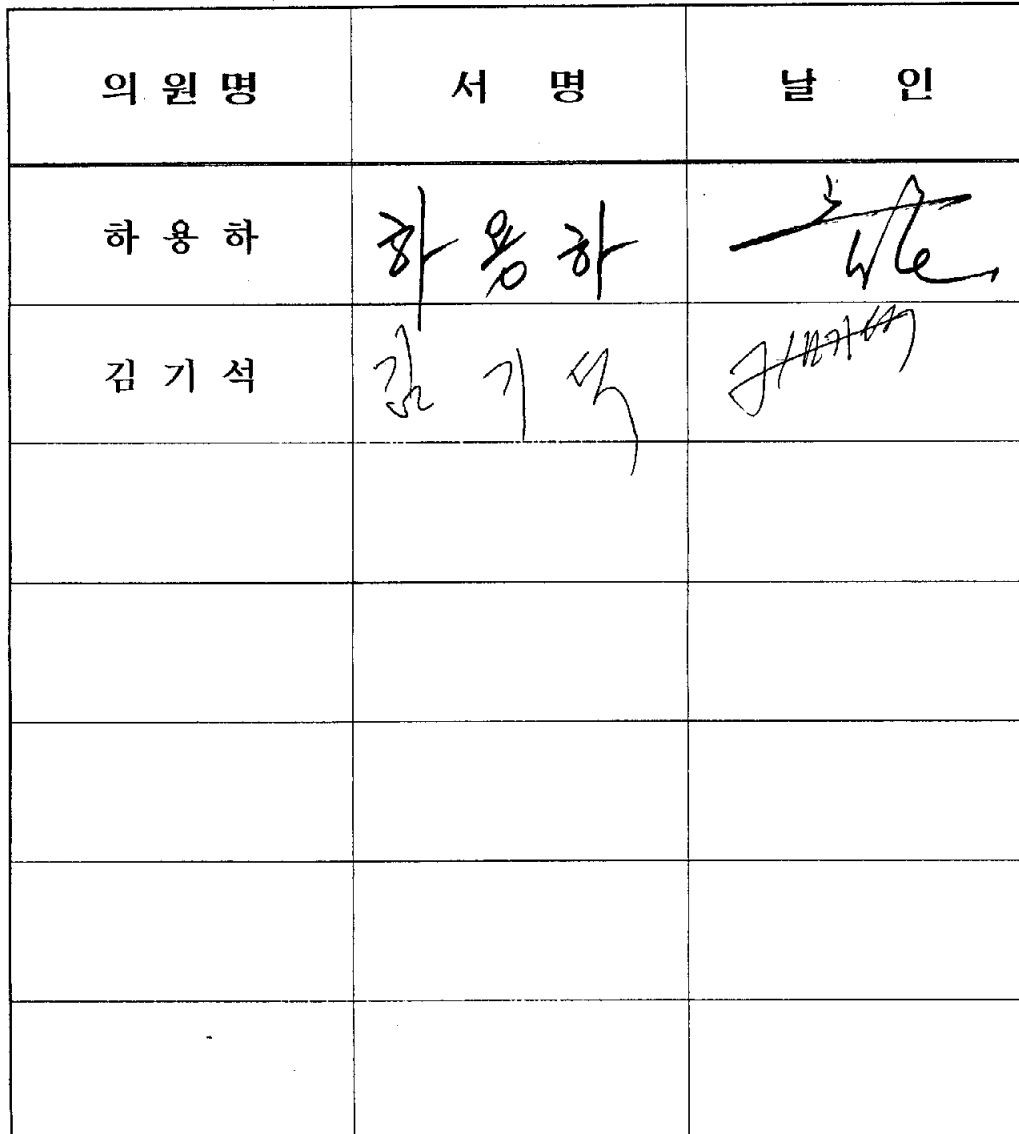 의원명 서명 날인
하용하 하용하
김기석 김기석